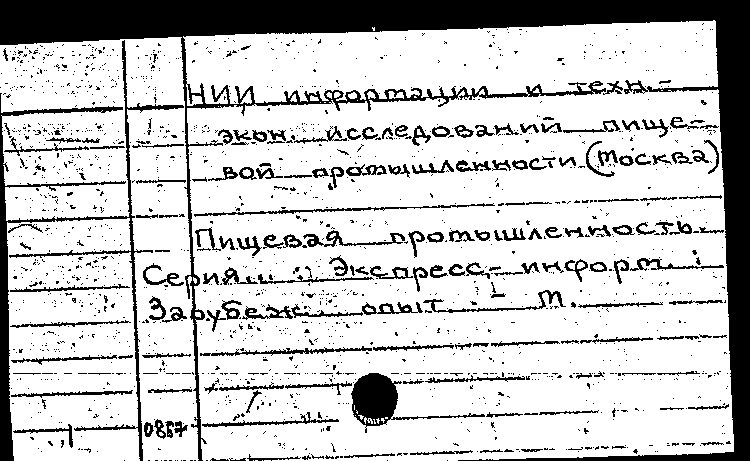 НИИ информации и техн.-
экон. исследований пище-
вой промышленности (Москва)
Пищевая промышленность.
Серия... : Экспресс-информ. :
Зарубеж. опыт. - М.
0887